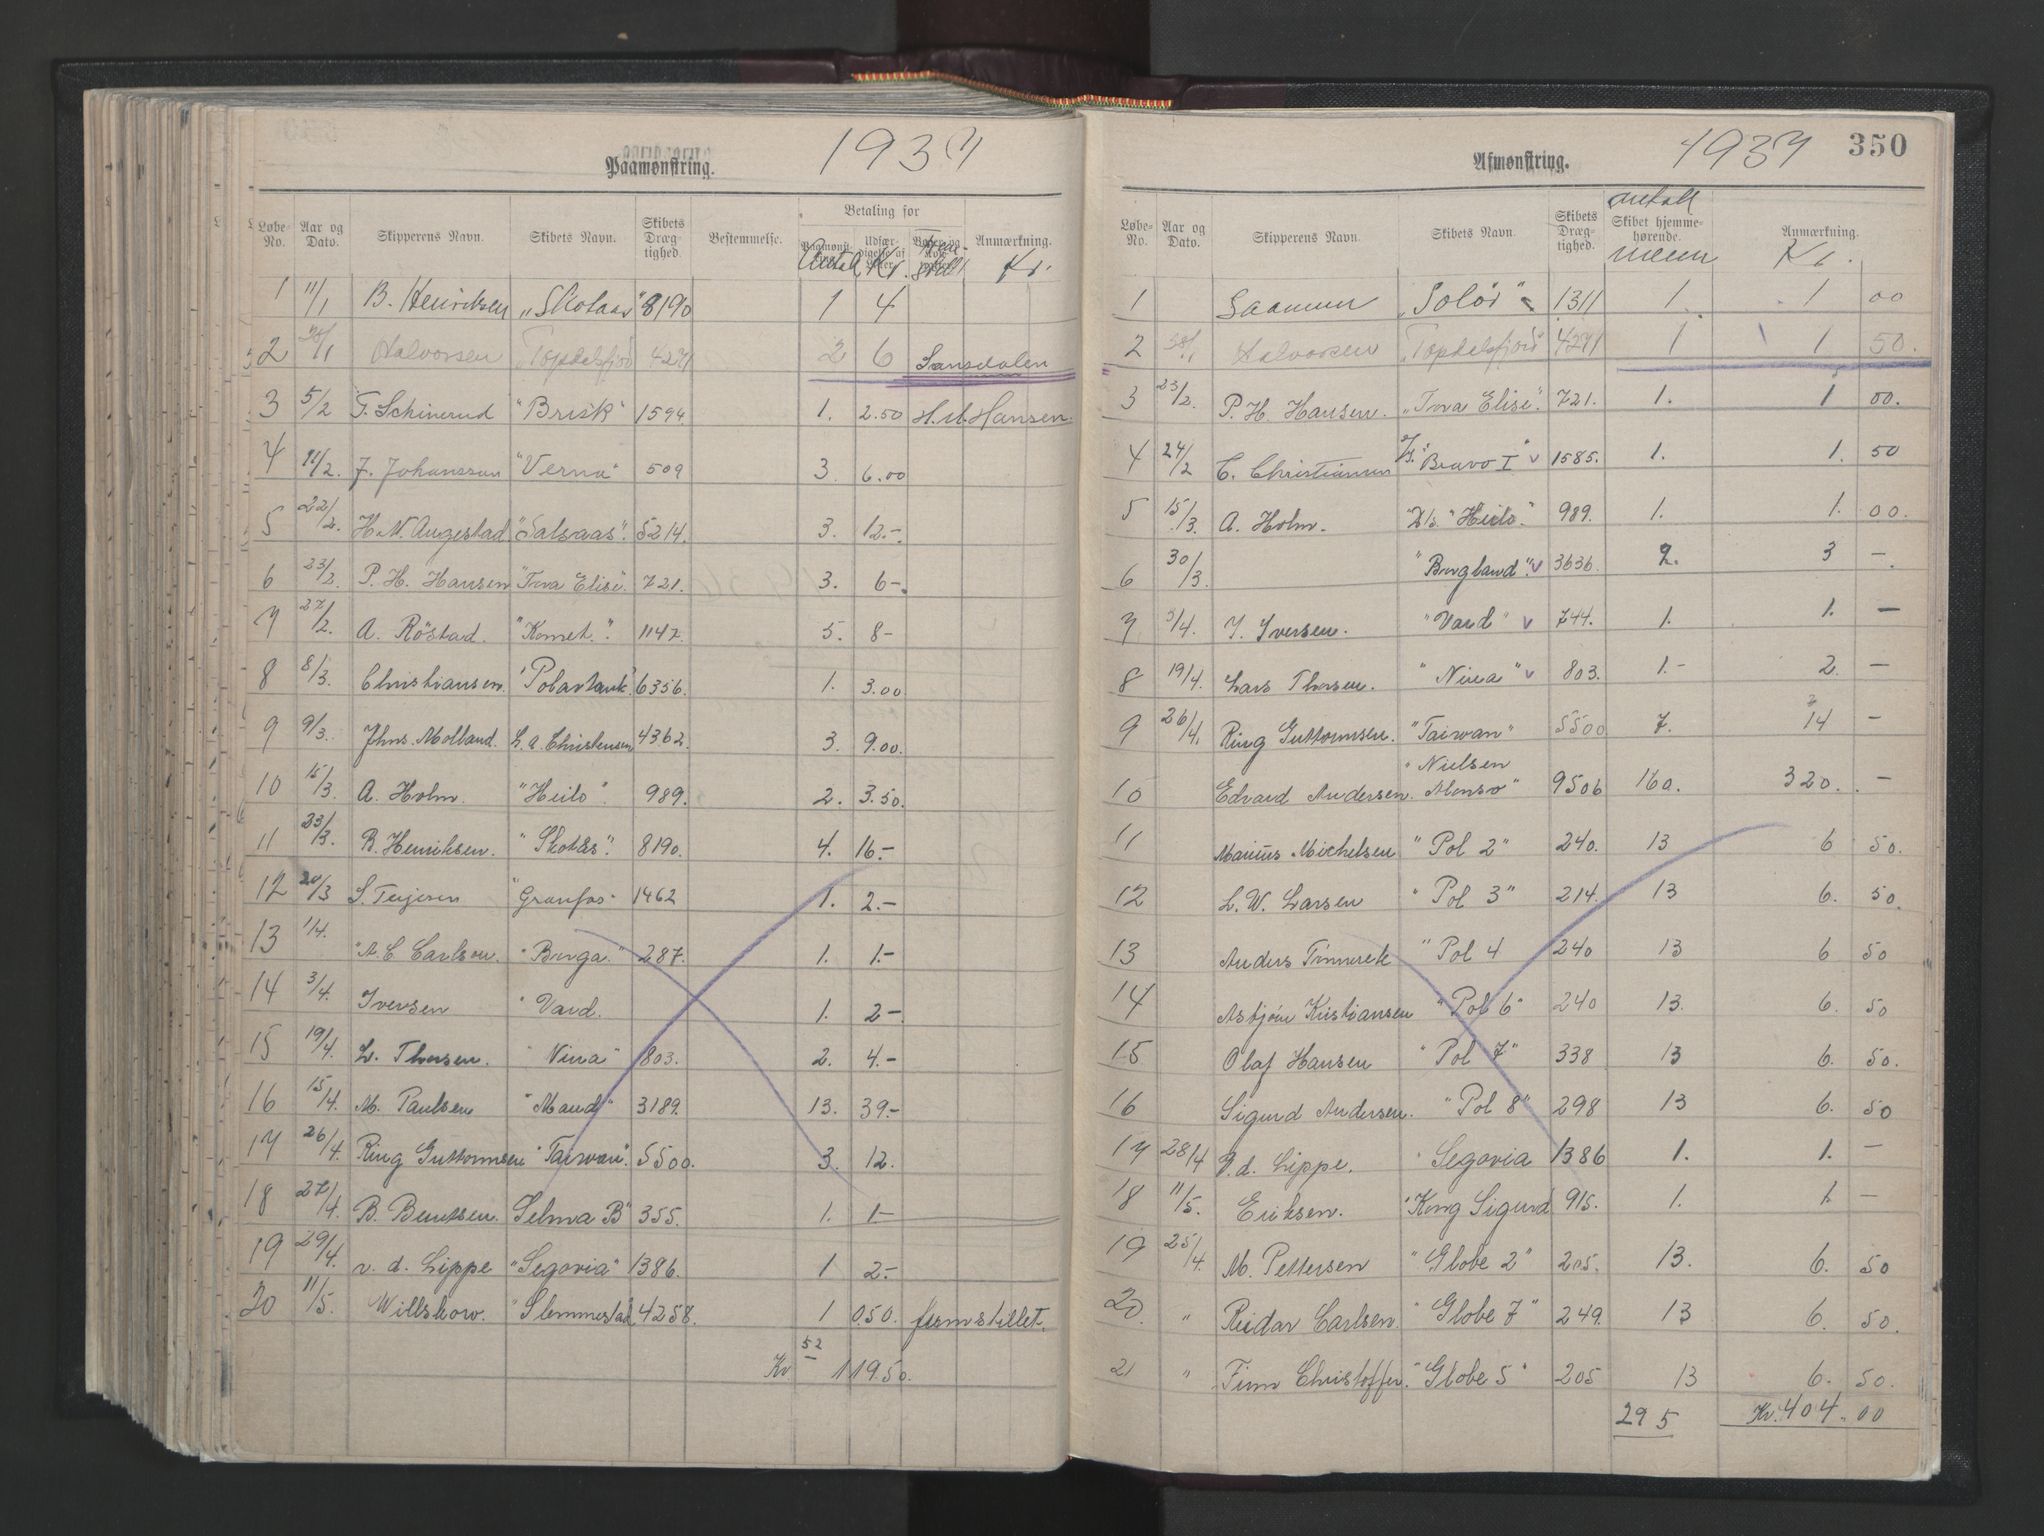 Paamønstring. 1937
Løbe-No. Aar og Dato. Skipperens Navn. Skibets Navn. Skibets Dræg-tighed. Bestemmelse. Betaling for Anmærkning.
Antal Kr. Kr.
1 11/1 B. Henriksen "Skotaas" 8190 1 4
2 28/1 Halvorsen "Topdalsfjord" 4271 2 6 Sansdalen
3 5/2 T. Schinerud "Brisk" 1594 1. 2.50 H. M. Hansen.
4 11/2. J. Johanssen "Verna" 509 3. 6.00
5 22/2. H. N. Augestad. "Salsaas". 5214. 3. 12.-
6 23/2. P. H. Hansen "Tova Elise". 721. 3. 6-.
7 27/2. A. Röstad. "Komet." 1147. 5. 8-
8 8/3. Christiansen. "Polartank". 6356. 1. 3.00
9 9/3. Jhns. Molland. L. A. Christensen 4362. 3. 9.00.
10 15/3. A. Holm. "Heilo". 989. 2. 3.50.
11 23/3. B. Henriksen. "Skotås". 8190. 4. 16.-
12 20/3 S. Teigsen "Granfos" 1462 1. 2.-
13 1/4. A. C. Carlsen. "Borga." 287. 1. 1.-
14 3/4. Iversen "Vard. 1. 2-.
15 19/4. L. Thorsen. "Nina" 803. 2. 4.-
16 15/4. M. Paulsen "Maud" 3189. 13. 39.-
17 26/4. Ring Guttormsen "Taiwan". 5500. 3. 12.
18 27/4. B. Bentsen. "Selma B" 355. 1. 1-
19 29/4. v. d. Lippe "Segovia" 1386. 1 2.-
20 11/5. Willsborw. "Slemmestad 4258. 1 0.50. fremstillet.
52
Kr 119.50.
Afmønstring. 1937 350
Løbe-No. Aar og Dato. Skipperens Navn. Skibets Navn. Skibets Dræg-tighed. Skibet hjemme-hørende. Anmærkning.
antall menn Kr.
1 Saamun "Solör" 1311 1 1 00
2 28/1 Halvorsen "Topdalsfjord" 4271 1 1 50.
3 23/2. P. H. Hansen. "Tova Elise". 721. 1. 1 00.
4 24/2 C. Christiansen "Bravo I" v 1585. 1. 1. 50
5 15/3. A. Holm. D/s. "Heilo." 989. 1. 1. 00.
6 30/3. "Borgland". v 3636. 2. 3 -
7 3/4. J. Iversen. "Vard" v 744. 1. 1. -
8 19/4. Lars Thorsen. "Nina" v 803. 1.- 2. -
9 26/4. Ring Guttormsen. "Taiwan" 5500 7. 14 -
10 Edvard Andersen. "Nielsen Alonso" 9506 160. 320. -
11 Marius Michelsen "Pol 2" 240. 13 6 50.
12 L. W. Larsen "Pol 3" 214. 13 6. 50.
13 Anders Timmerek "Pol 4 240 13 6 50
14 Asbjörn Kristiansen "Pol 6" 240 13. 6. 50
15 Olaf Hansen "Pol 7" 338 13 6. 50.
16 Sigurd Andersen. "Pol 8" 298 13 6. 50
17 28/4 V. d. Lippe. "Segovia 1386 1. 1. -
18 11/5. Eriksen. "Kong Sigurd 915. 1. 1. -
19 25/4. M. Pettersen "Globe 2" 205. 13. 6. 50
20. " Reidar Carlsen. "Globe 7" 249. 13 6. 50.
21 " Finn Christoffer. "Globe 5" 205 13 6. 50.
295 Kr. 404.00